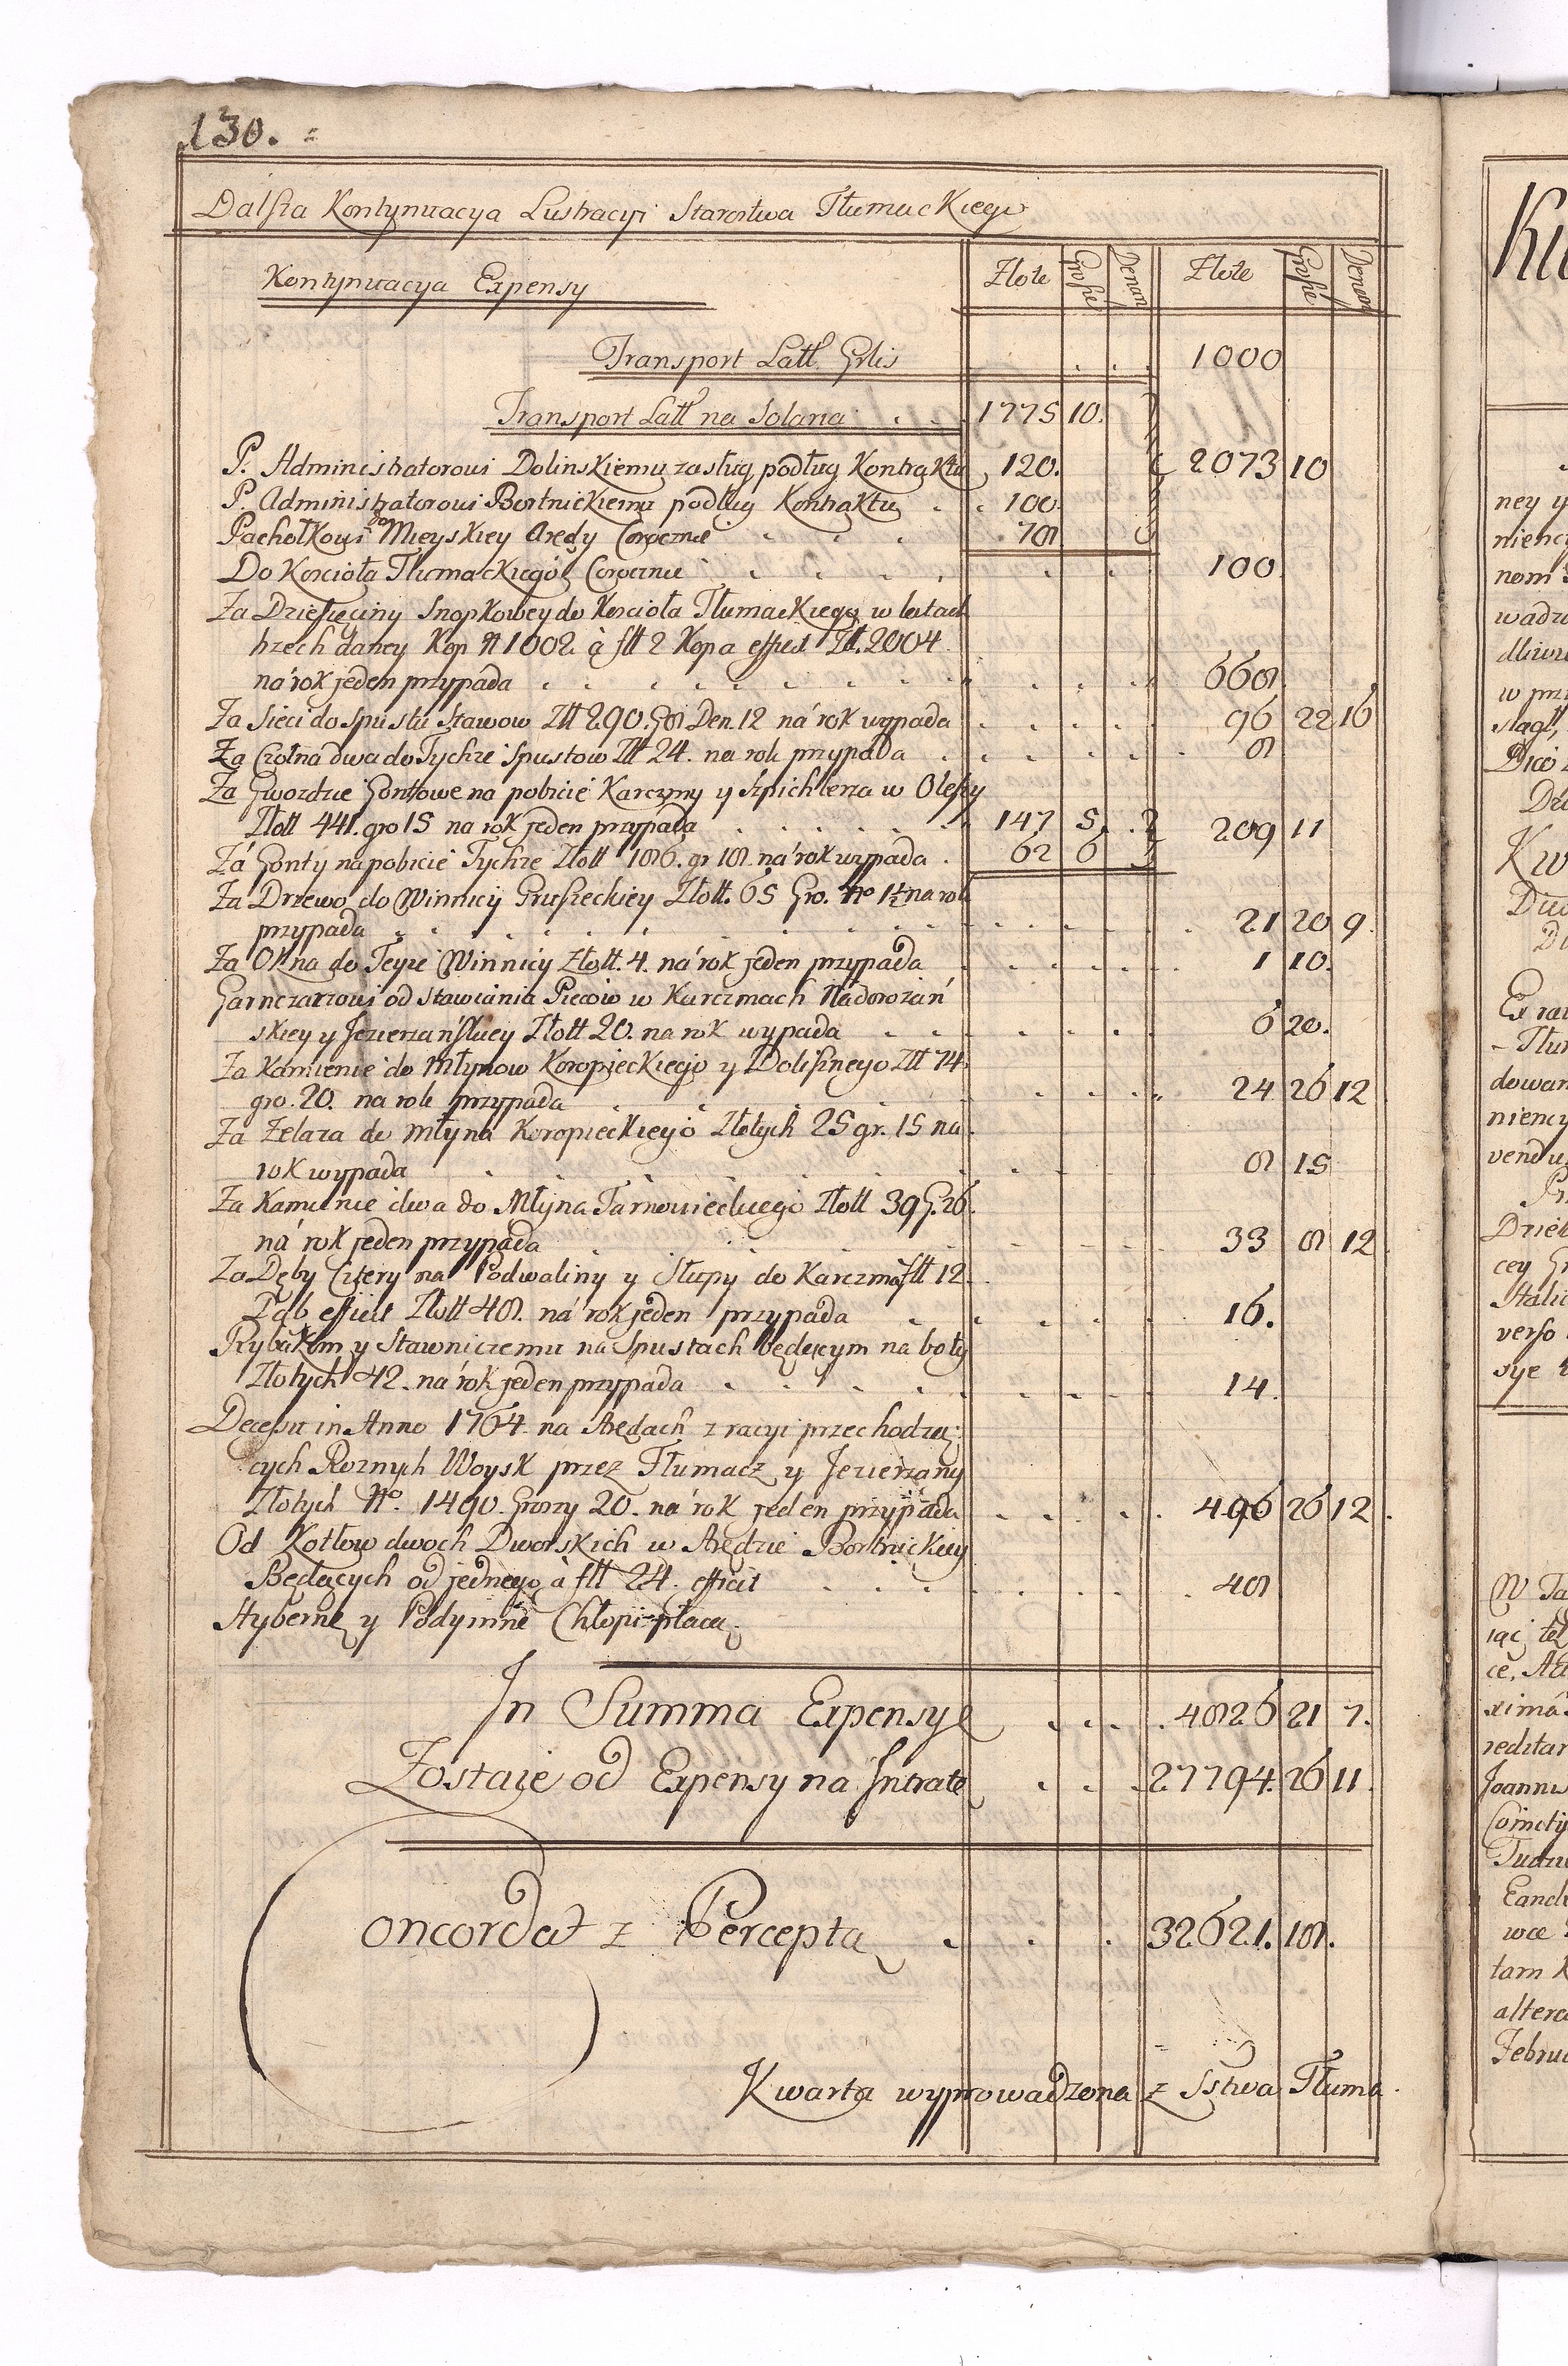 130.
Dalsza Kontynuacya Lustracyi Starostwa Tłumackiego
Kontynuacya Expensy Złote Grosze Denar Złote Grosze Denar
Transport Latt Grlis . . . 1000
Transport Latt na Solaria . . 1775 10.
P. Administratorowi Dolinskiemu zasług podług Kontraktu 120. 2073 10
P. Administratorowi Bortnickiemu podług Kontraktu . . 100.
Pachołkowi do Mieyskiey Arędy Corocznie . . . 78
Do Koscioła Tłumackiego Corocznie . . . . 100
Za Dziesięciny Snopkowey do Koscioła Tłumackiego w latach
trzech daney Kop N 1002. à flł 2 Kopa efficit Złł. 2004.
na rok jeden przypada . . . . 668
Za Sieci do Spustu Stawow Złł 290. G 8 Den. 12 na rok wypada . . 96 22 16
Za Czołna dwa do Tychze Spustow Złł 24. na rok przypada . . 8
Za Gwozdzie Gontowe na pobicie Karczmy y Szpichlerza w Oleszy
Złott 441. gro 15 na rok jeden przypada . . . 147 5. 209 11
Za Gonty na pobicie Tychze Złott 186. gr 18. na rok wypada . 62 6
Za Drzewo do Winnicy Gruszeckiey Złott. 65 Gro. No 1½ na rok
przypada . . . . 21 20 9.
Za Okna do Teyze Winnicy Złott. 4. na rok jeden przypada . . 1 10.
Garnczarzowi od stawiania Piecow w Karczmach Nadorozań
skiey y Jezierzańskiey Złott 20. na rok wypada . . 6 20.
Za Kamienie do Młynow Koropieckiego y Dolisznego Złł 74.
gro. 20. na rok przypada . . . 24 26 12
Za Zelaza do młyna Koropieckiego Złotych 25 gr. 15 na
rok wypada . . . . 8 15
Za Kamienie dwa do Młyna Tarnowieckiego Złott 39 G. 26.
na rok jeden przypada . . . 33 8 12
Za Dęby Cztery na Podwaliny y Słupy do Karczmą flł 12.
Dąb efficit Złott 48. na rok jeden przypada . . 16.
Rybakom y Stawniczemu na Spustach będącym na boty
Złotych 42. na rok jeden przypada . . . 14.
Decessu in Anno 1764. na Arędach z racyi przechodzą
cych Roznych Woysk przez Tłumacz y Jezierzany
Złotych No. 1490. Groszy 20. na rok jeden przypada . . 496 26 12.
Od Kotłow dwoch Dworskich w Arędzie Bortnickiey
Będących od jednego à flł 24. efficit . . . 48
Hybernę y Podymne Chłopi płacą.
In Summa Expensy . . . 4826 21 7.
Zostaie od Expensy na Intratę . . . 27794. 26 11.
Concordat z Perceptą . . . 32621. 18.
Kwarta wyprowadzona z Sstwa Tłuma